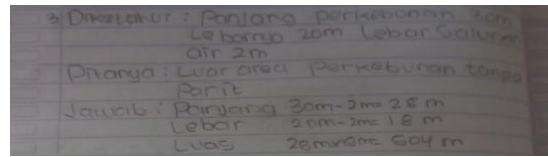 3) Diketahui : Panjang perkebunan 30m
Lebarnya 20m Lebar Saluran
air 2m
Ditanya : Luas area Perkebunan tanpa
Parit
Jawab : Panjang 30m-2m= 28 m
Lebar 20m-2m= 18 m
Luas 28mx18m= 504 m